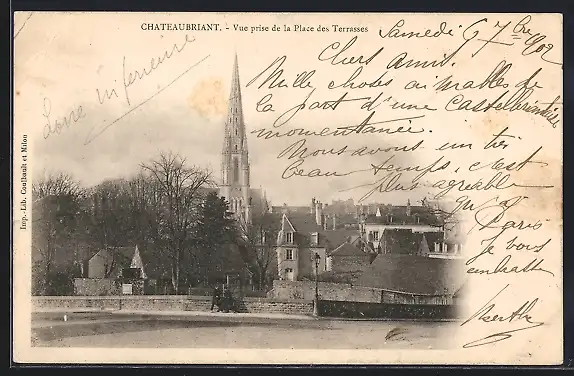 CHATEAUBRIANT. - Vue prise de la Place des Terrasses
Samedi 6 7bre 1902
Chers Amis.
Mille choses aimables de
la part d'une Castelbriantaise
momentanée.
Nous avons un très
beau temps, c'est
plus agréable
qu'à
Paris
Je vous
embrasse
Berthe
Loire inférieure
Imp.-Lib. Coulbault et Milon